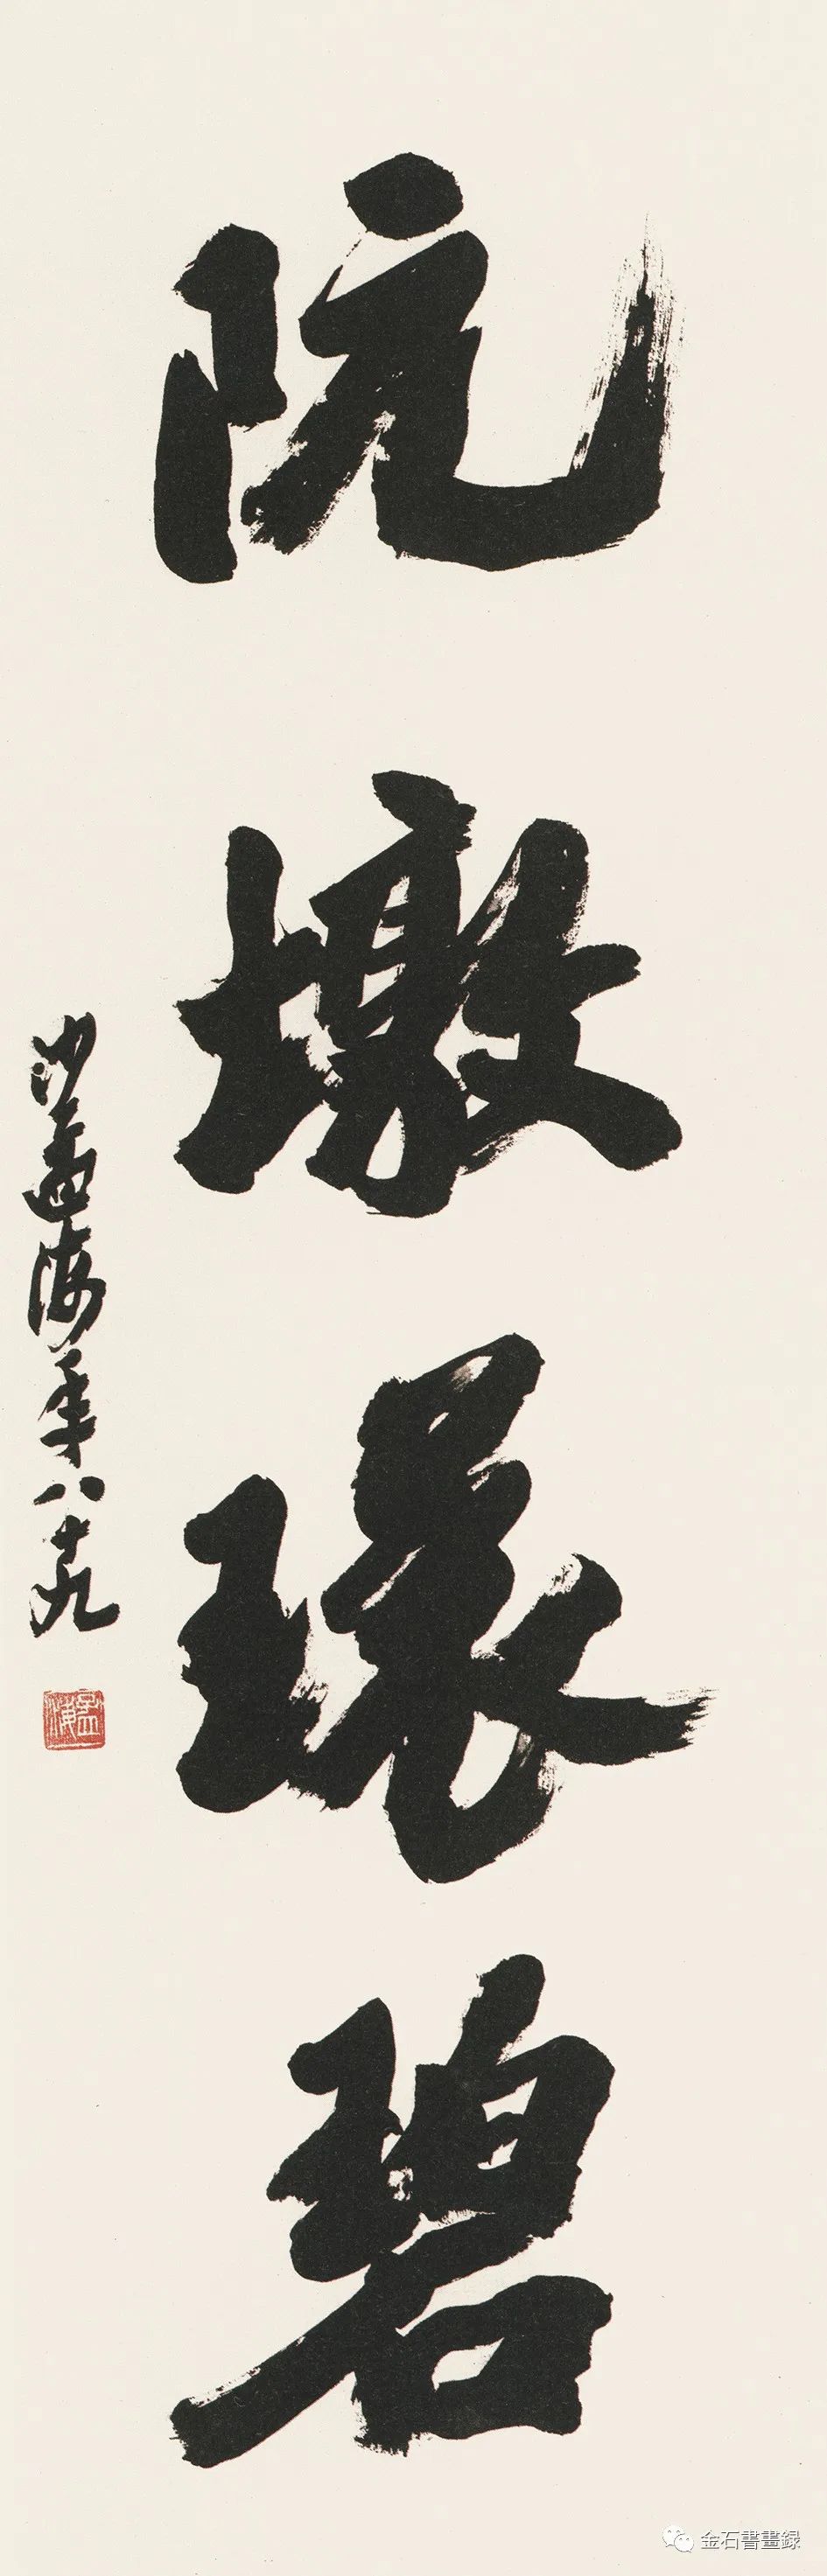 阮墩環碧
沙孟海年八十九
孟海
金石書畫録